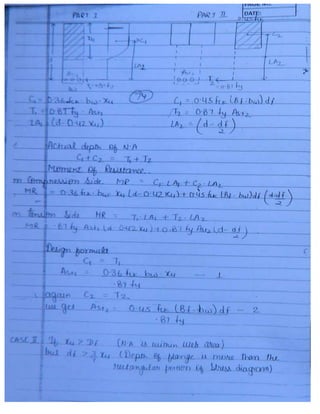 PART I PART II DATE:
xu C1 C2
LA1 LA2
Ast1 Ast2
C1 = 0.36 fck bw. xu C2 = 0.45 fck (Bf - bw) df
T1 = 0.87 fy. Ast1 T2 = 0.87 fy Ast2
LA1 (d - 0.42 xu) LA2 = (d - df/2)
Actual depth of N.A
C1 + C2 = T1 + T2
Moment of Resistance
Compression Side MR = C1. LA1 + C2. LA2
MR = 0.36 fck. bw. xu (d - 0.42 xu) + 0.45 fck (Bf - bw) df (d - df/2)
Tension Side MR = T1. LA1 + T2. LA2
MR .87 fy Ast1 (d - 0.42 xu) + 0.87 fy Ast2 (d - df/2)
Design formula
C1 = T1
Ast1 = 0.36 fck bw. xu — 1
.87 fy
again C2 = T2
we get Ast2 = 0.45 fck (Bf - bw) df - 2
.87 fy
CASE II If xu > Df (N.A is within web area)
but df > 3/7 xu (Depth of flange is more than the
rectangular portion of stress diagram)